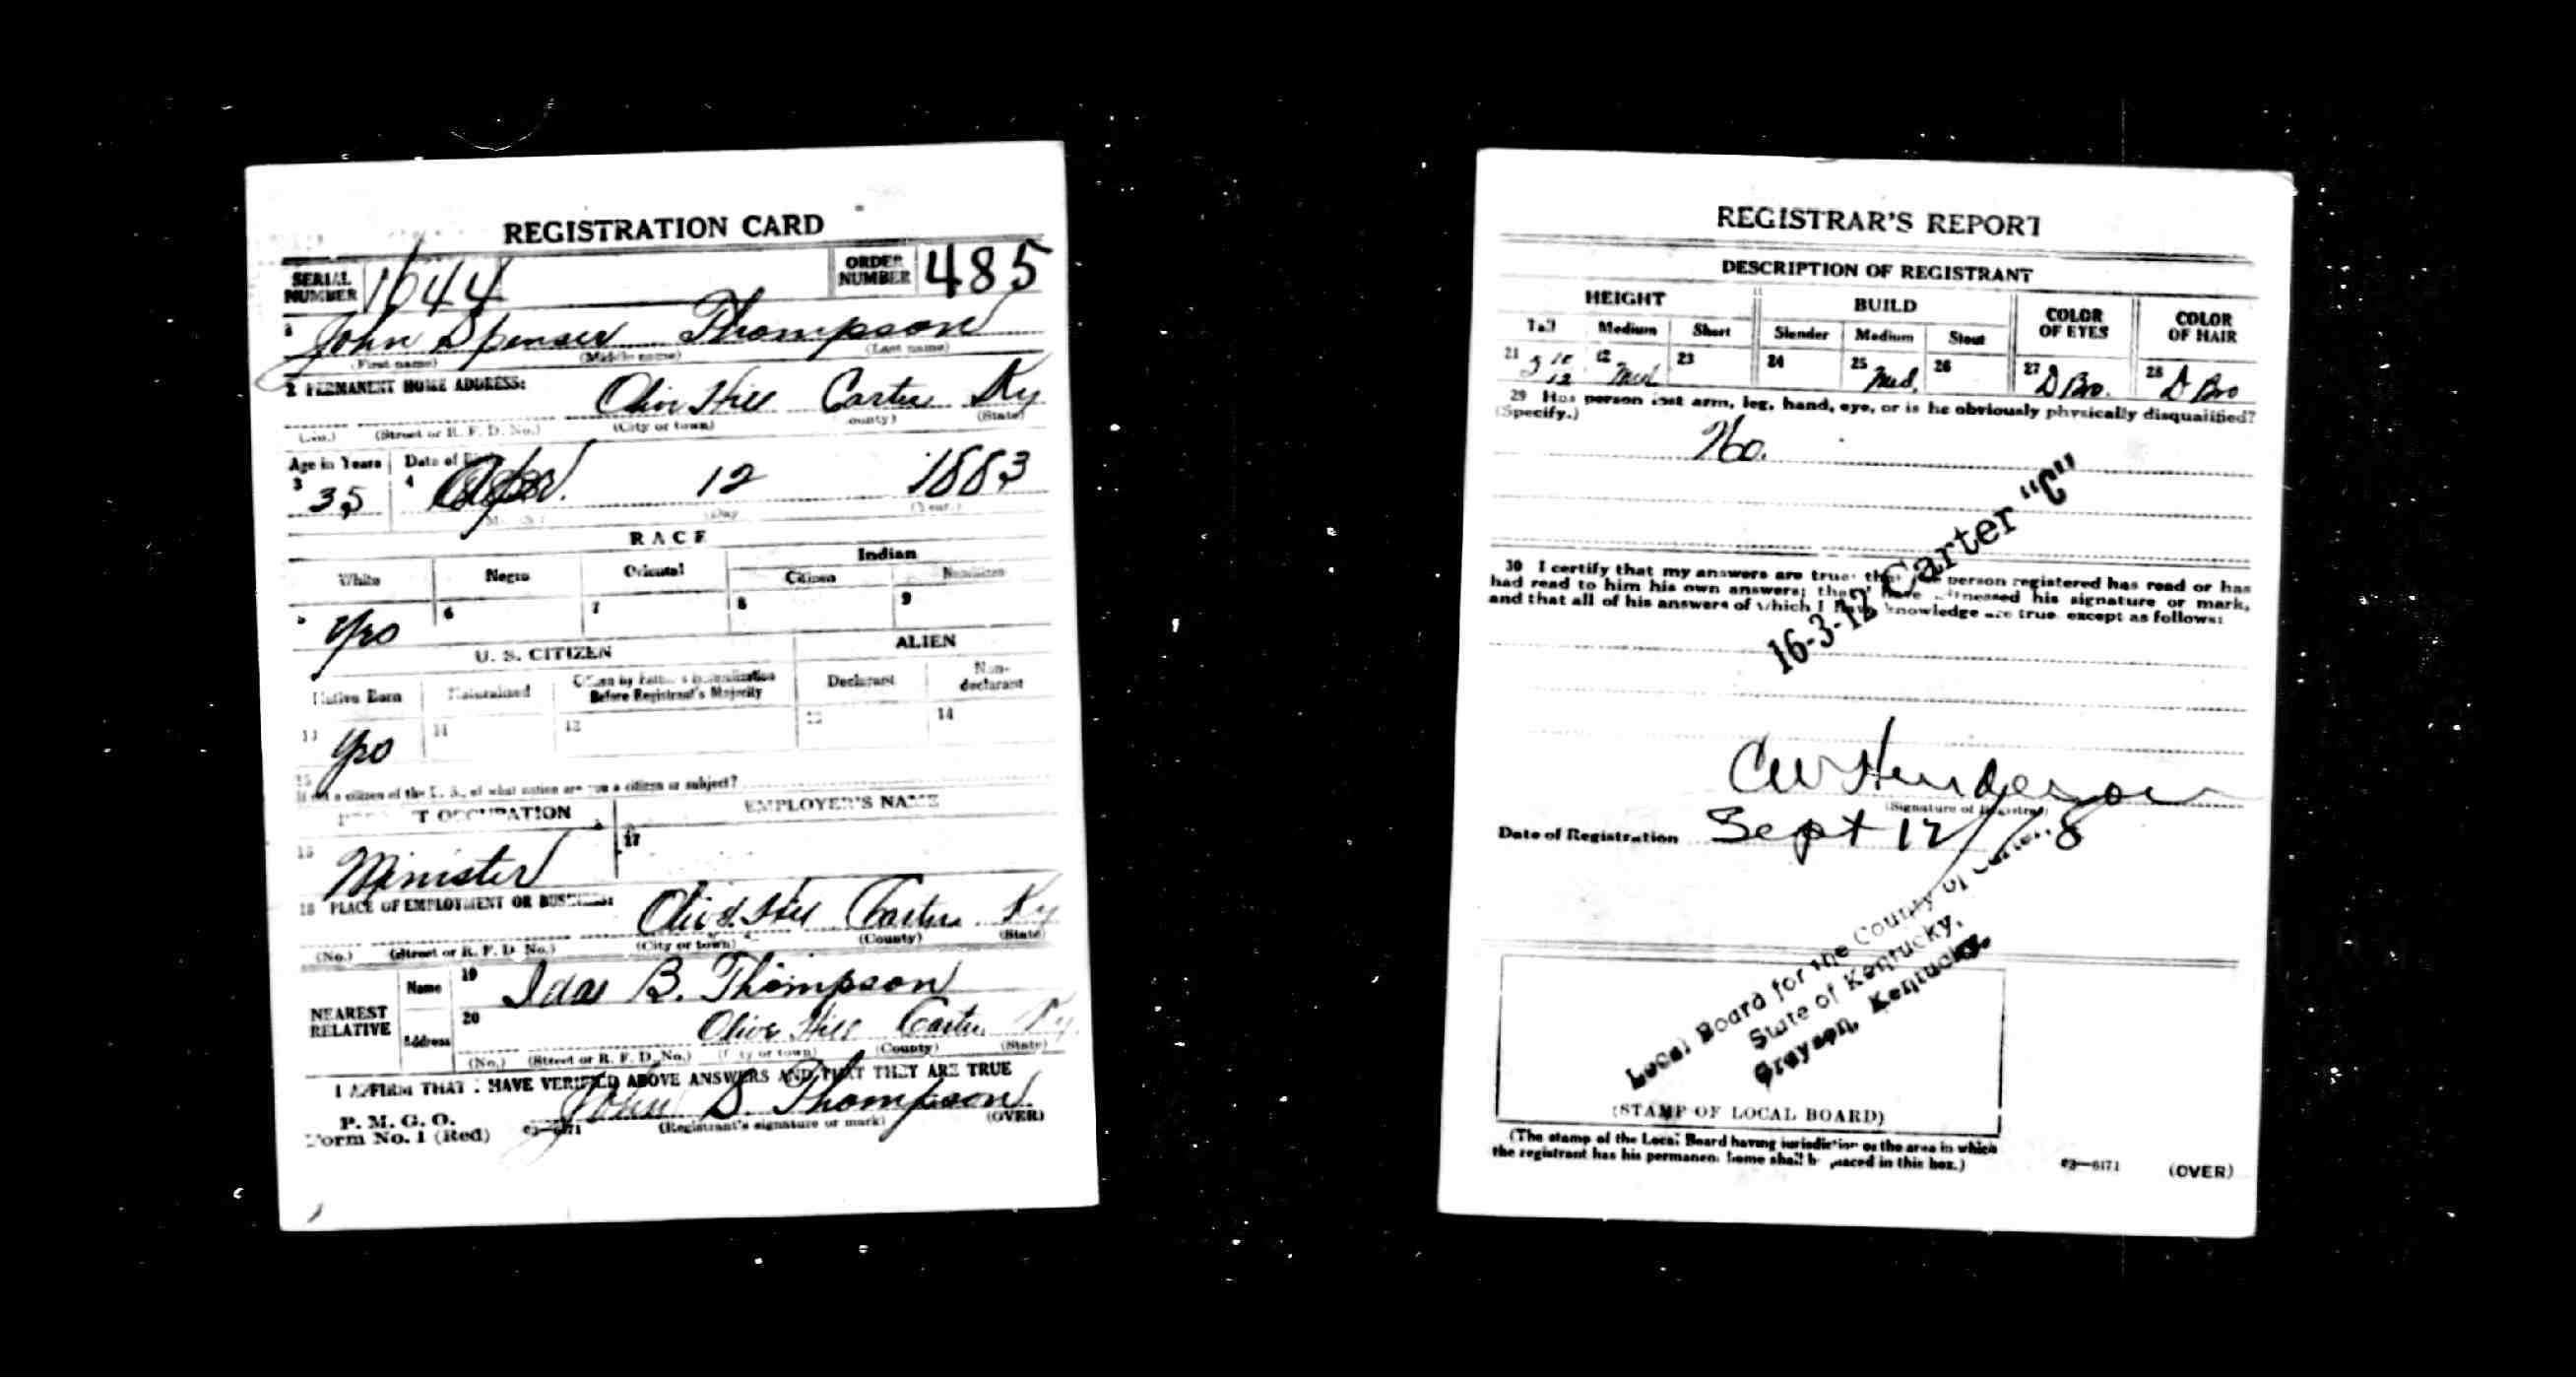 REGISTRATION CARD
SERIAL NUMBER 1644 ORDER NUMBER 485
1 John Spenser Thompson
(First name) (Middle name) (Last name)
2 PERMANENT HOME ADDRESS:
Olive Hill Carter Ky
(No.) (Street or R. F. D. No.) (City or town) (County) (State)
Age in Years Date of
3 35 4 Apr. 12 1883
(Day) (Year.)
RACE
White Negro Oriental Indian
Citizen
6 7 8 9
Yes
U. S. CITIZEN ALIEN
Native Born Naturalized Citizen by Father's Naturalization Before Registrant's Majority Declarant Non-declarant
11 12 14
Yes
15
If not a citizen of the U. S., of what nation are you a citizen or subject?
OCCUPATION EMPLOYER'S NAME
16 Minister 17
18 PLACE OF EMPLOYMENT OR BUSINESS:
Olive Hill Carter Ky
(No.) (Street or R. F. D. No.) (City or town) (County) (State)
NEAREST RELATIVE
Name 19 Ida B. Thompson
Address 20 Olive Hill Carter Ky.
(No.) (Street or R. F. D. No.) (City or town) (County) (State)
I AFFIRM THAT I HAVE VERIFIED ABOVE ANSWERS AND THAT THEY ARE TRUE
P. M. G. O.
Form No. 1 (Red) John S. Thompson
(Registrant's signature or mark) (OVER)
REGISTRAR'S REPORT
DESCRIPTION OF REGISTRANT
HEIGHT BUILD COLOR OF EYES COLOR OF HAIR
Tall Medium Short Slender Medium Stout
21 22 Med 23 24 25 Med. 26 27 D Bro. 28 D Bro
29 Has person lost arm, leg, hand, eye, or is he obviously physically disqualified?
(Specify.)
No.
30 I certify that my answers are true; that the person registered has read or has
had read to him his own answers; that I have witnessed his signature or mark,
and that all of his answers of which I have knowledge are true, except as follows:
16-3-12 Carter "C"
CW Henderson
(Signature of Registrar)
Date of Registration Sept 12/18
Local Board for the County of Carter
State of Kentucky,
Grayson, Kentucky.
(STAMP OF LOCAL BOARD)
(The stamp of the Local Board having jurisdiction of the area in which
the registrant has his permanent home shall be placed in this box.)
03—6171 (OVER)